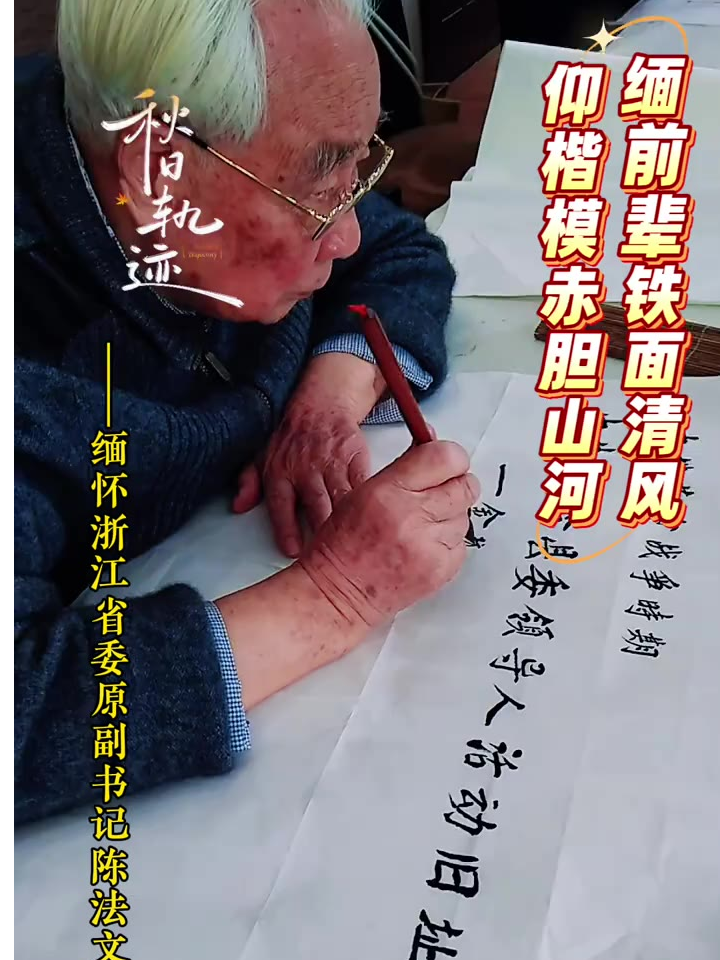 缅前辈铁面清风
仰楷模赤胆山河
秋日轨迹
——缅怀浙江省委原副书记陈法文
战争时期
县委领导人活动旧址
一余